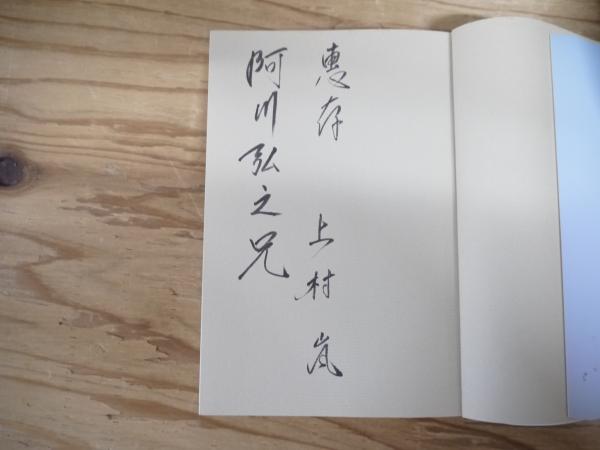 恵存 上村 嵐
阿川弘之兄